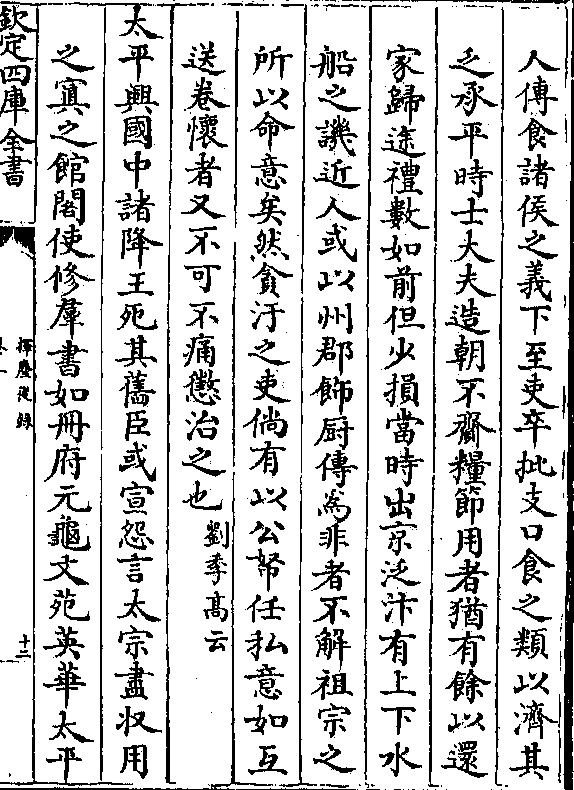 人傳食諸侯之義下至吏卒批支口食之類以濟其
乏承平時士大夫造朝不齎糧節用者猶有餘以還
家歸途禮數如前但少損當時出京泛汴有上下水
船之譏近人或以州郡飾厨傳為非者不解祖宗之
所以命意矣然貪汙之吏倘有以公帑任私意如互
送卷懷者又不可不痛懲治之也劉季髙云
太平興國中諸降王死其舊臣或宣怨言太宗盡收用
之寘之館閣使修羣書如冊府元龜文苑英華太平
欽定四庫全書
揮麈後錄
卷一
十二